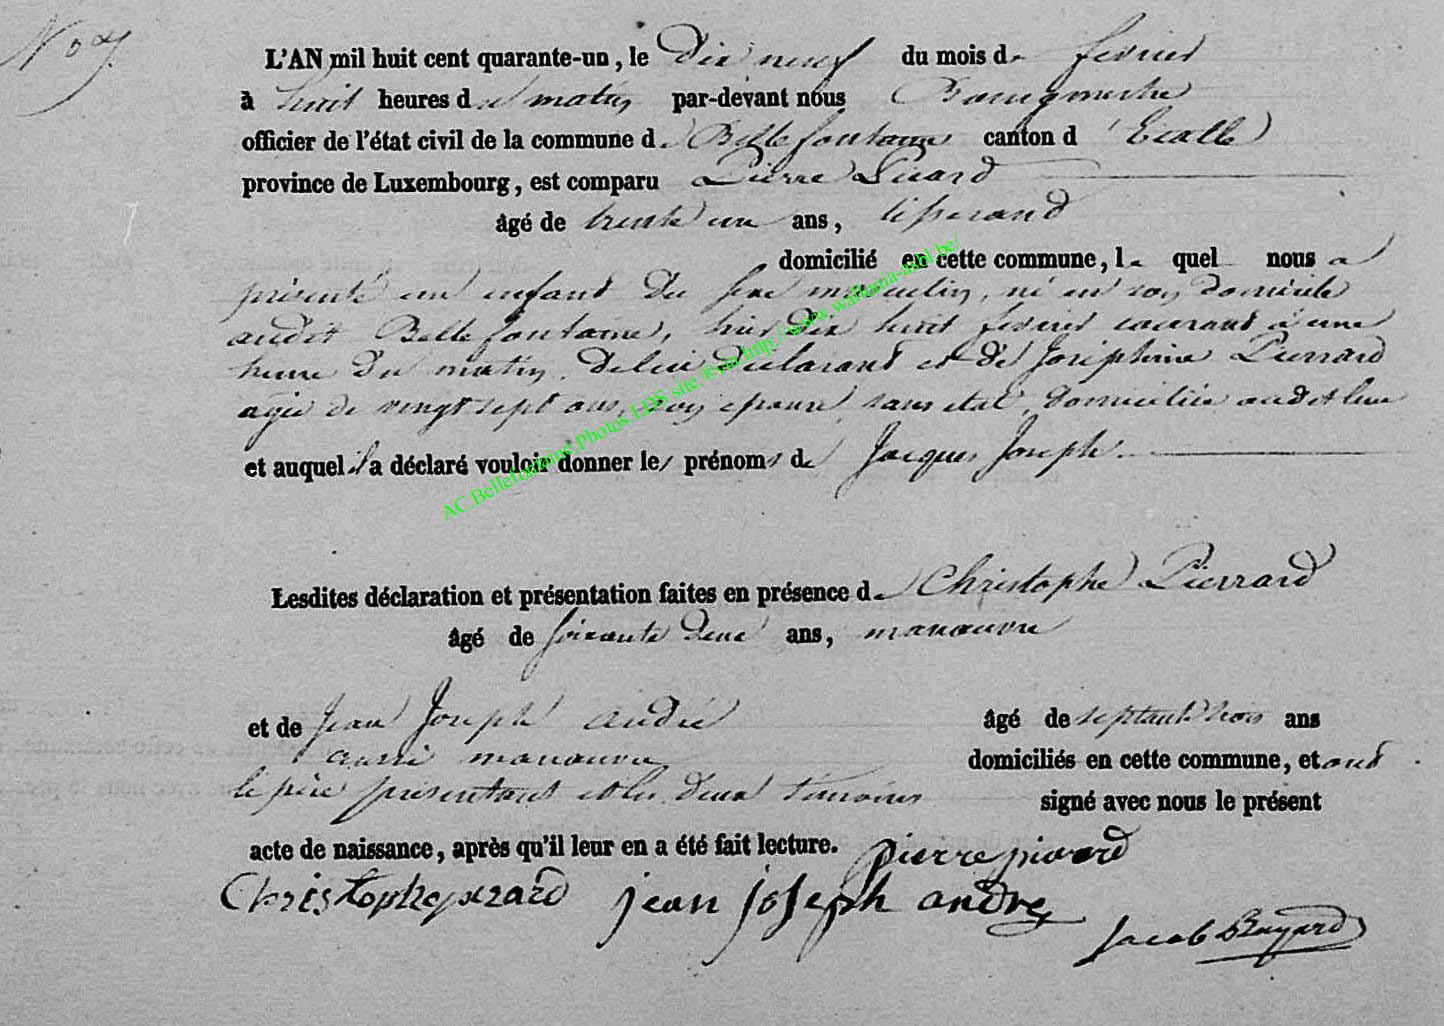 N° 7.
L'AN mil huit cent quarante-un, le Dix neuf du mois de fevrier
à huit heures du matin par-devant nous Bourgmestre
officier de l'état civil de la commune de Bellefontaine canton d'Etalle
province de Luxembourg, est comparu Pierre Picard
âgé de trente un ans, tisserand
domicilié en cette commune, le quel nous a
présenté un enfant du sexe masculin, né en son domicile
audit Bellefontaine, hier dix huit fevrier courant à une
heure du matin, de lui déclarant et de Josephine Pierrard
agée de vingt sept ans, son epouse, sans etat, domiciliée audit lieu
et auquel il a déclaré vouloir donner les prénoms de Jacques Joseph.
Lesdites déclaration et présentation faites en présence de Christophe Pierrard
âgé de soixante deux ans, manœuvre
et de Jean Joseph André âgé de septante trois ans
aussi manœuvre domiciliés en cette commune, et ont
le père présentant et les deux témoins signé avec nous le présent
acte de naissance, après qu'il leur en a été fait lecture. pierre picard
Christophe pierard jean joseph andre
Jacob
AC.Bellefontaine.Photos.LDS site.®via http://www.wallonia-asbl.be/